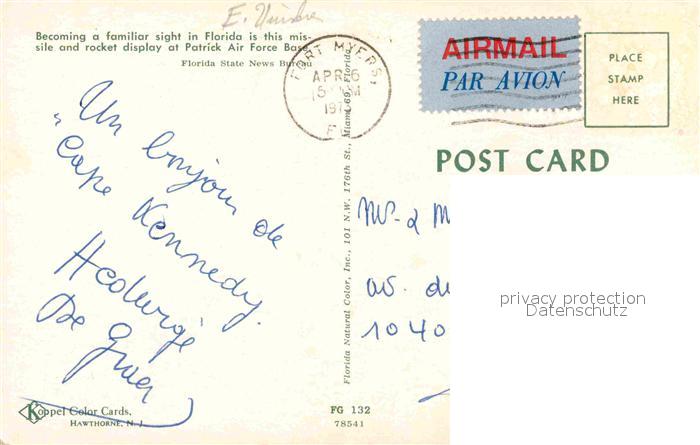 Becoming a familiar sight in Florida is this mis-
sile and rocket display at Patrick Air Force Base.
Florida State News Bureau
FORT MYERS,
APR 6
AIRMAIL
PAR AVION
PLACE
STAMP
HERE
POST CARD
Un bonjour de
"Cape Kennedy.
De
Florida Natural Color, Inc., 101 N.W. 176th St., Miami 69, Florida
av. d
1040
privacy protection
Datenschutz
Koppel Color Cards.
HAWTHORNE, N. J.
FG 132
78541